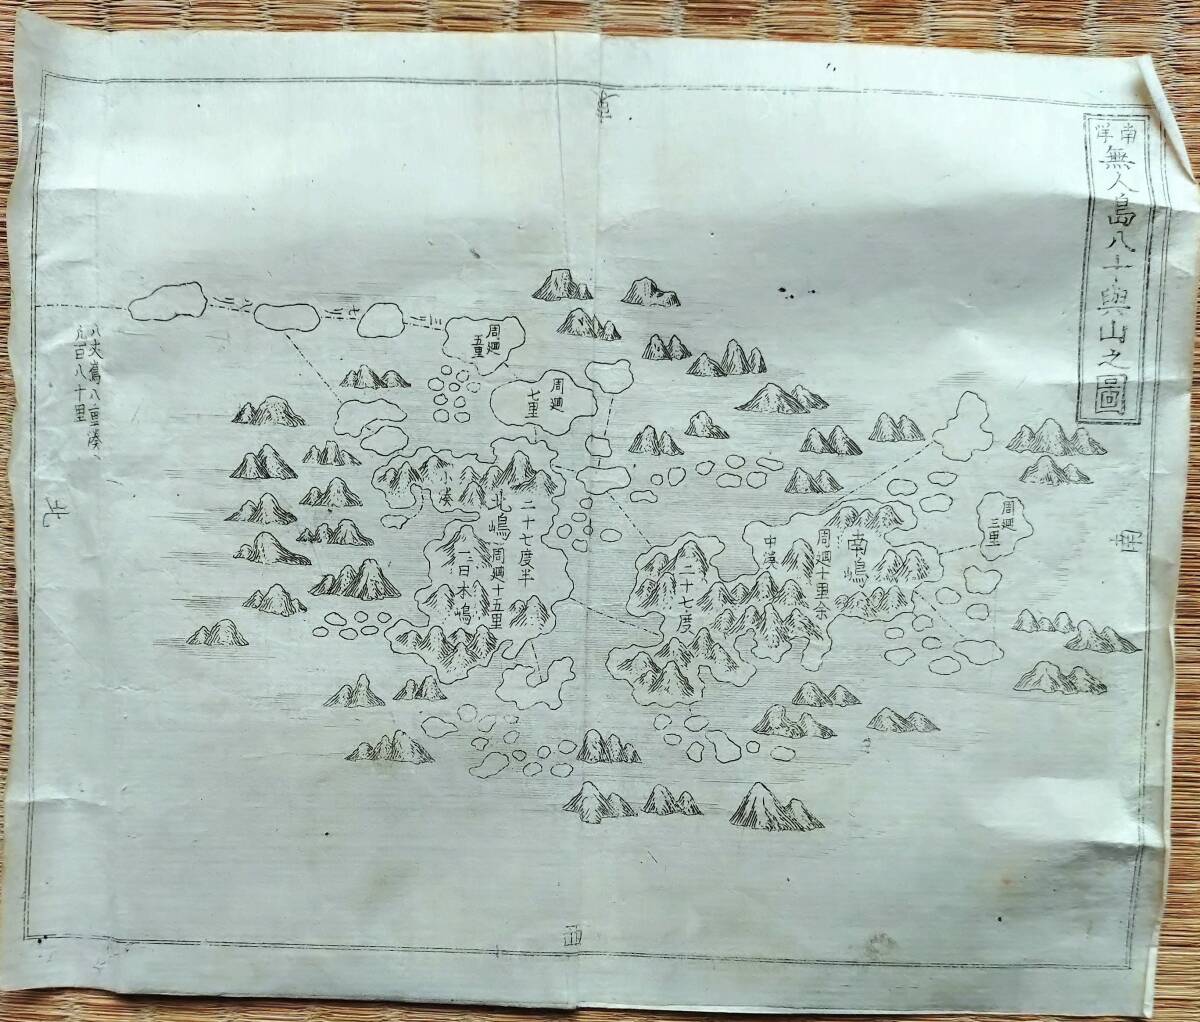 南洋
無人島八十嶼山之圖
東
南
西
北
周廻
三里
南嶋
周廻十里余
中湊
二十七度
周廻
七里
周廻
五里
二十七度半
北嶋
周廻十五里
小湊
一日本嶋
八丈嶌八重湊
百八十里